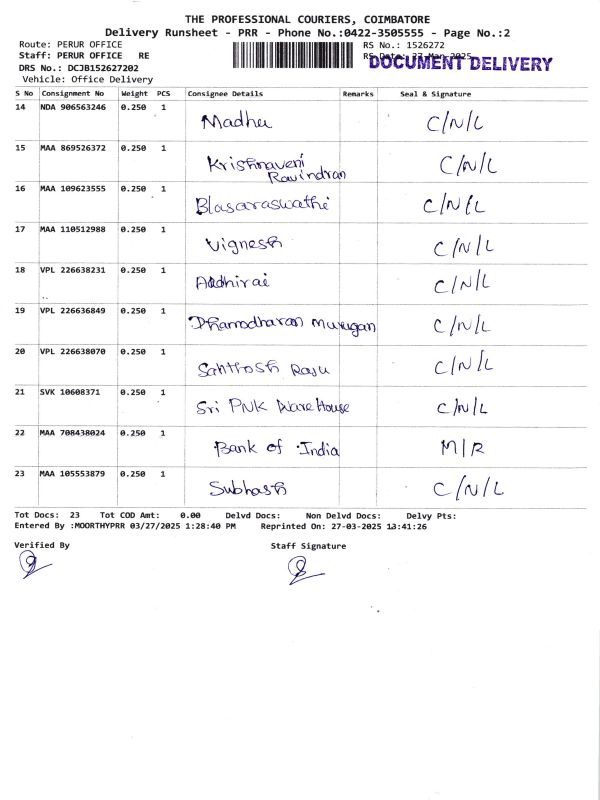 THE PROFESSIONAL COURIERS, COIMBATORE
Delivery Runsheet - PRR - Phone No.:0422-3505555 - Page No.:2
Route: PERUR OFFICE RS No.: 1526272
Staff: PERUR OFFICE RE RS Date: 27-Mar-2025
DOCUMENT DELIVERY
DRS No.: DCJB152627202
Vehicle: Office Delivery
S No Consignment No Weight PCS Consignee Details Remarks Seal & Signature
14 NDA 906563246 0.250 1 Madhu C/N/L
15 MAA 869526372 0.250 1 Krishnaveni Ravindran C/N/L
16 MAA 109623555 0.250 1 Blasaraswathi C/N/L
17 MAA 110512988 0.250 1 Vignesh C/N/L
18 VPL 226638231 0.250 1 Aadhirai C/N/L
19 VPL 226636849 0.250 1 Dhamodharan Murugan C/N/L
20 VPL 226638070 0.250 1 Sahthosh Raju C/N/L
21 SVK 10608371 0.250 1 Sri PNK Ware House C/N/L
22 MAA 708438024 0.250 1 Bank of India M/R
23 MAA 105553879 0.250 1 Subhash C/N/L
Tot Docs: 23 Tot COD Amt: 0.00 Delvd Docs: Non Delvd Docs: Delvy Pts:
Entered By :MOORTHYPRR 03/27/2025 1:28:40 PM Reprinted On: 27-03-2025 13:41:26
Verified By Staff Signature